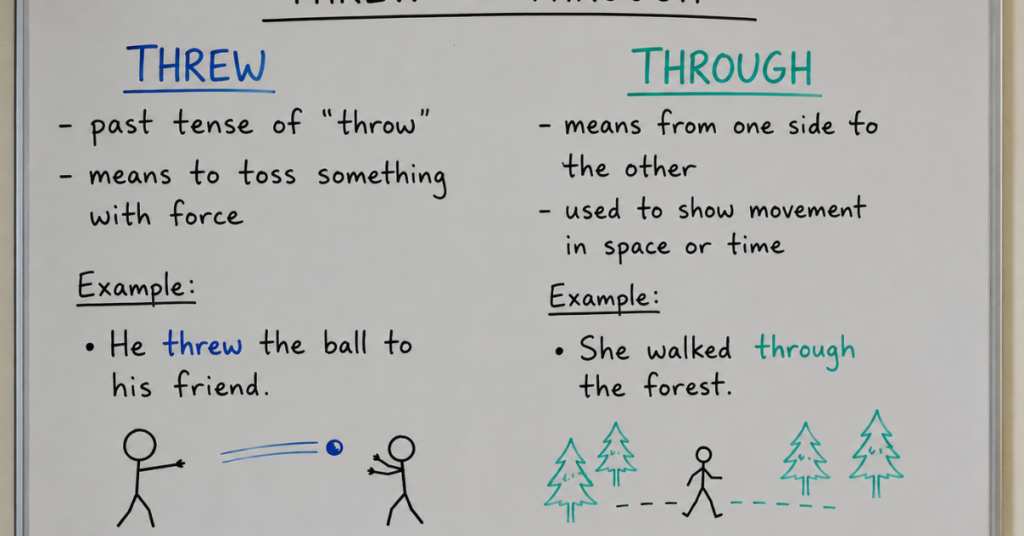 THREW
- past tense of "throw"
- means to toss something
with force
Example:
• He threw the ball to
his friend.
THROUGH
- means from one side to
the other
- used to show movement
in space or time
Example:
• She walked through
the forest.